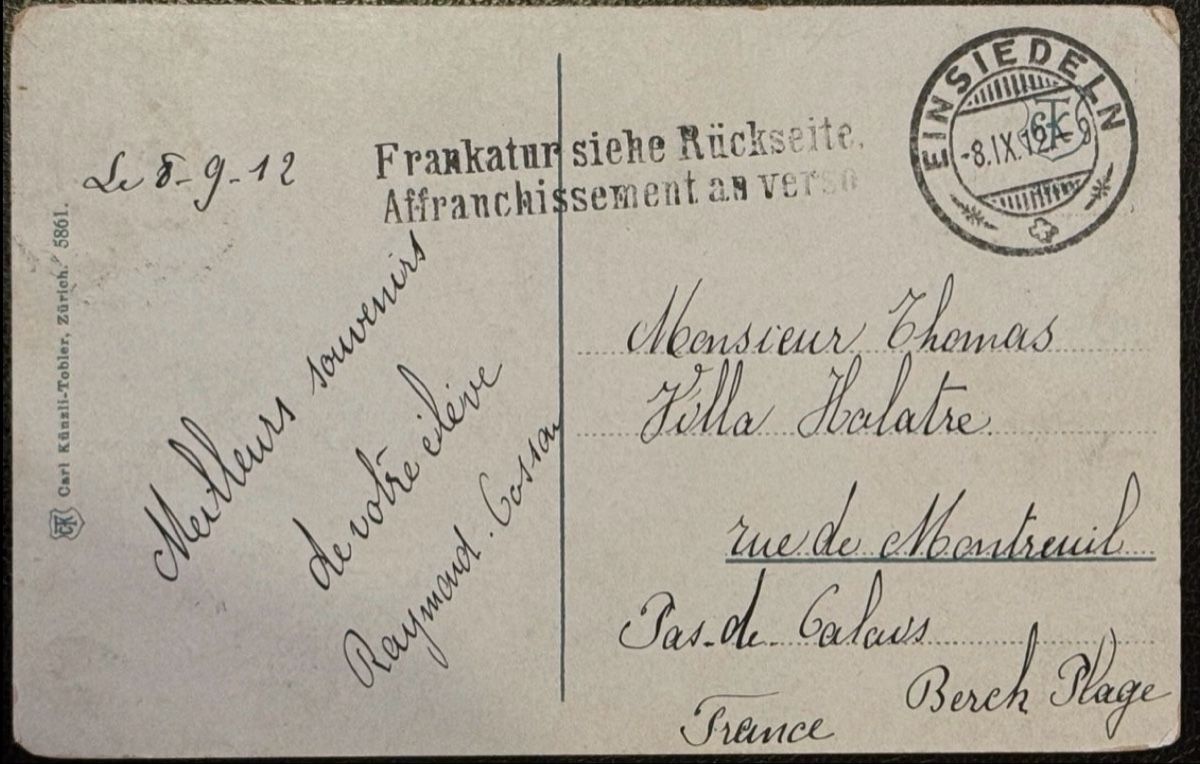 Le 8-9-12
Frankatur siehe Rückseite.
Affranchissement au verso
EINSIEDELN
-8.IX.12.-9
CTK
Carl Künzli-Tobler, Zürich. 5861.
Meilleurs souvenirs
de votre élève
Raymond. Cossau
Monsieur Thomas
Villa Holatre
rue de Montreuil
Pas-de-Calais
Berck Plage
France